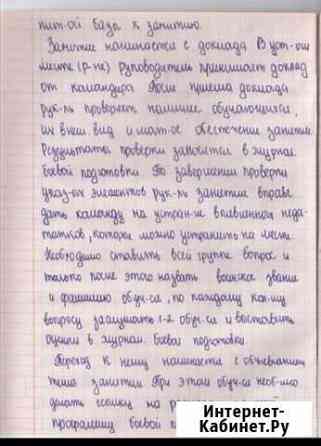 мат-ой базы к занятию.
Занятие начинается с доклада В уст-ом
месте (р-не) руководитель принимает доклад
от командира После приема доклада
рук-ль проверяет наличие обучающихся,
их внеш вид и мат-ое обеспечение занятия.
Результаты проверки заносится в журнал
боевой подготовки По завершении проверки
указ-ых элементов рук-ль занятия вправе
дать команду на устран-ие выявленных недо-
статков, которые можно устранить на месте.
Необходимо ставить всей группе вопрос и
только после этого назвать воинское звание
и фамилию обуч-ся, по каждому кон-му
вопросу заслушать 1-2 обуч-ся и выставить
оценки в журнал боевой подготовки.
Переход к нему начинается с объявления
темы занятия При этом обуч-ся необ-мо
делать ссылку на
программу боевой
Интернет-
Кабинет.Ру